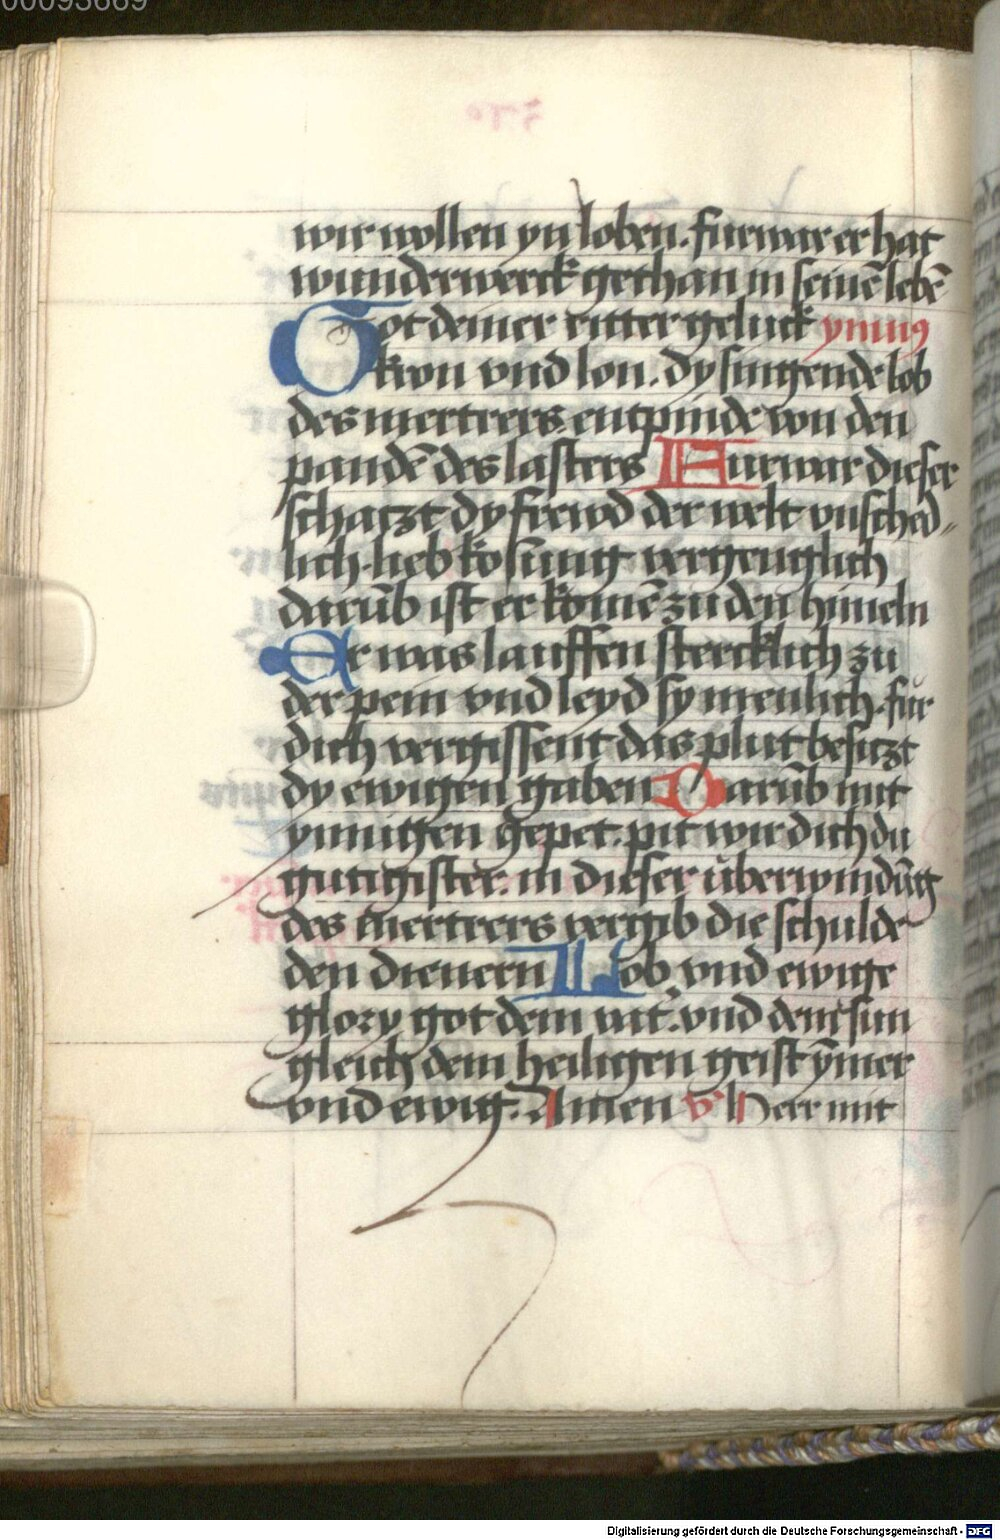 00093669
wir wollen yn loben. furwar er hat
wunderwerck gethan in seinē lebē
Got deiner ritter geluck ymnus
kron vnd lon. dy singende lob
des mertrers. entpinde von den
pandē des lasters Furwar dieser
schatzt dy frewd der welt vnsched„
lich. liebkosung vergenglich
darūb ist er komē zu den himeln
Er was lauffen stercklich zu
der pein vnd leyd sy menlich. für
dich vergissent das plut besitzt
dy ewigen gaben Darūb mit
ynnigen gepet. pit wir dich du
gutigister. in dieser überwindūg
des mertrers vergib die schulde
den dienern Lob vnd ewige
glory got dem vat. vnd dem sun
gleich dem heiligen geist ȳmer
vnd ewig. Amen v Herr mit
Digitalisierung gefördert durch die Deutsche Forschungsgemeinschaft - DFG